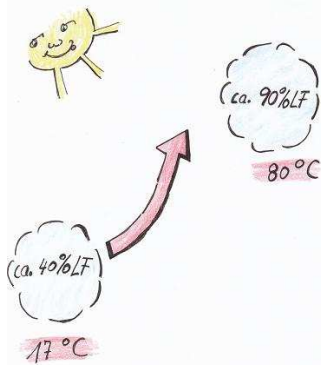 ca. 90%LF
80°C
ca. 40%LF
17°C